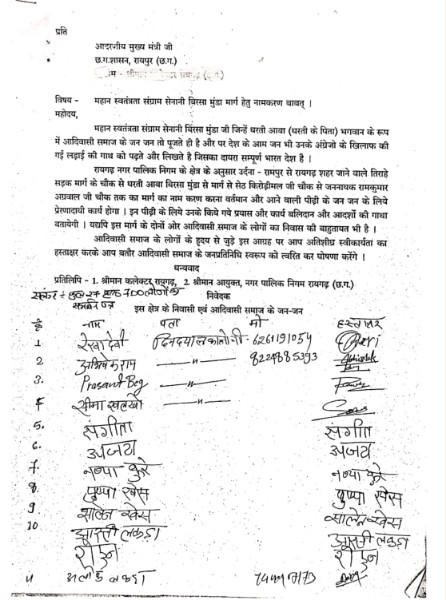 प्रति
आदरणीय मुख्य मंत्री जी
छ.ग.शासन, रायपुर (छ.ग.)
विषय - महान स्वतंत्रता संग्राम सेनानी बिरसा मुंडा मार्ग हेतु नामकरण बाबत् ।
महोदय,
महान स्वतंत्रता संग्राम सेनानी बिरसा मुंडा जी जिन्हें धरती आबा (धरती के पिता) भगवान के रूप
में आदिवासी समाज के जन जन तो पूजते ही है और पर देश के आम जन भी उनके अंग्रेजो के खिलाफ की
गई लड़ाई की गाथ को पढ़ते और लिखते है जिसका दायरा सम्पूर्ण भारत देश है ।
रायगढ़ नगर पालिक निगम के क्षेत्र के अनुसार उर्दना - रामपुर से रायगढ़ शहर जाने वाले तिराहे
सड़क मार्ग के चौक से धरती आबा बिरसा मुंडा से मार्ग से सेठ किरोड़ीमल जी चौक से जननायक रामकुमार
अग्रवाल जी चौक तक का मार्ग का नाम करण करना वर्तमान और आने वाली पीढ़ी के जन जन के लिये
प्रेरणादायी कार्य होगा । इन पीढ़ी के लिये उनके किये गये प्रयास और कार्य बलिदान और आदर्शो की गाथा
बतायेगी । यद्यपि इस मार्ग के दोनों ओर आदिवासी समाज के लोगों का निवास की बाहुतायत भी है ।
आदिवासी समाज के लोगों के हृदय से जुड़े इस आग्रह पर आप अतिशीघ्र स्वीकार्यता का
हस्ताक्षर करके आप बतौर आदिवासी समाज के जनप्रतिनिधि स्वरूप को त्वरित कर घोषणा करेंगे ।
धन्यवाद
प्रतिलिपि - 1. श्रीमान कलेक्टर रायगढ़, 2. श्रीमान आयुक्त, नगर पालिक निगम रायगढ़ (छ.ग.)
निवेदक
इस क्षेत्र के निवासी एवं आदिवासी समाज के जन-जन
नाम पता मो हस्ताक्षर
1 रेखा देवी दिनदयाल कालोनी 6261191054
2 अभिषेक राम —"— 8224885393 Abhishek
3. Prasant Beg —"—
4 सीमा —"—
5. संगीता संगीता
6. अजय अजय
7. नव्या कुरे नव्या कुरे
8 पुष्पा खेस पुष्पा खेस
9
10 आरती लकड़ा आरती लकड़ा